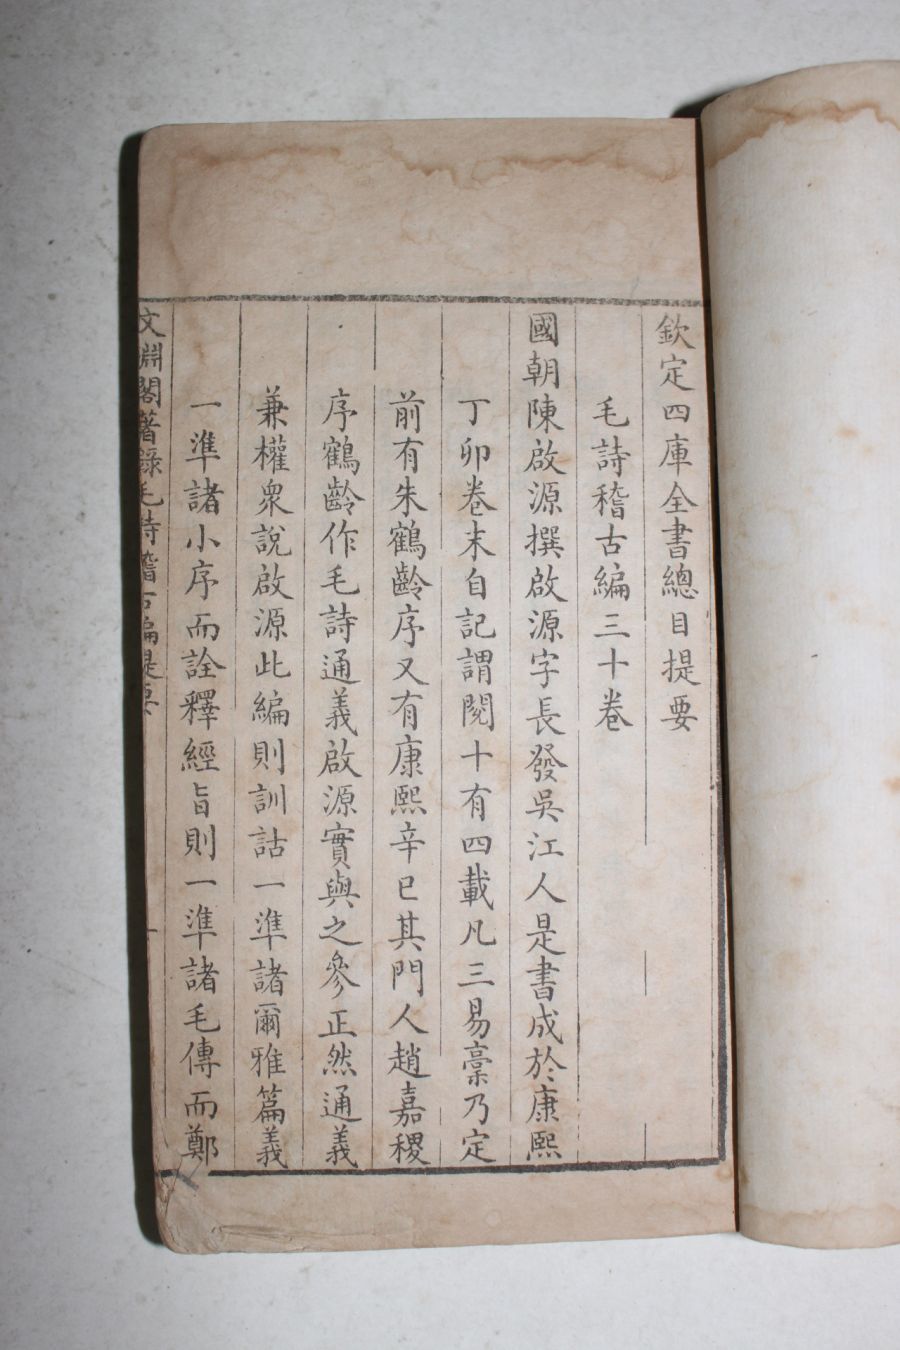 欽定四庫全書總目提要
毛詩稽古編三十卷
國朝陳啟源撰啟源字長發吳江人是書成於康熙
丁卯卷末自記謂閱十有四載凡三易稾乃定
前有朱鶴齡序又有康熙辛巳其門人趙嘉稷
序鶴齡作毛詩通義啟源實與之參正然通義
兼權衆說啟源此編則訓詁一準諸爾雅篇義
一準諸小序而詮釋經旨則一準諸毛傳而鄭
文淵閣著錄毛詩稽古編提要 一